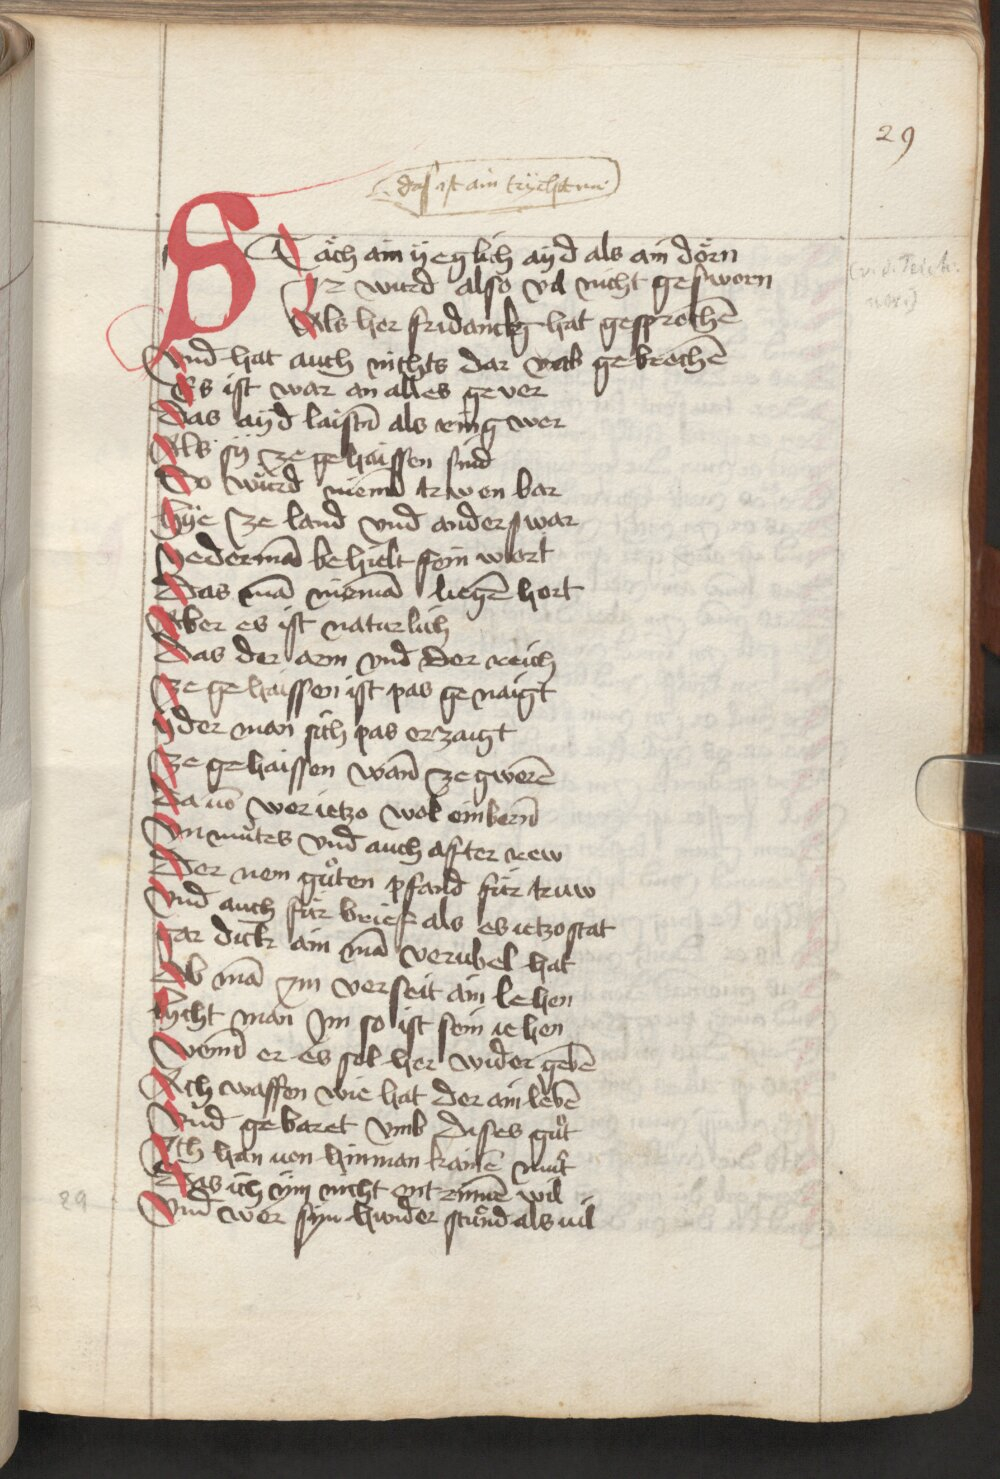 29
das ist ain
Stäch ain yeglich ayd als ain dorn
Ir wurd also vil nicht gesworn
Als her fridanckg hat gesprochē
Vnd hat auch nichts dar gebrochē
Es ist war an alles gever
Das ayd laistn als ring wer
Als sy ze gehaissen sind
So würd niemd trwen bar
Hye ze land vnd anderswar
yederman behielt sein wort
Das mā niemā liegē hort
Aber es ist naturlich
Das der arm vnd der reich
Ze gehaissen ist pas genaigt
yder man sich pas erzaigt
Ze gehaissen wand ze gwerē
Da uō wer ietzo wol einbern
Vnmutes vnd auch after rew
Der nem guͦten pfand für truw
Vnd auch für brief als es ietzo stat
gar dick ain mā verubel hat
Ob mā ym verseit ain lehen
Licht man ym so ist sein iehen
er es sol her wider gebē
Ach waffen wie hat der ain lebē
Vnd gebaret vmb dises guͦt
Ich han uon hinman kainē muͦt
Das ich ym nicht entrinnē wil
Vnd wer syn hinder stuͦnd als uil
29